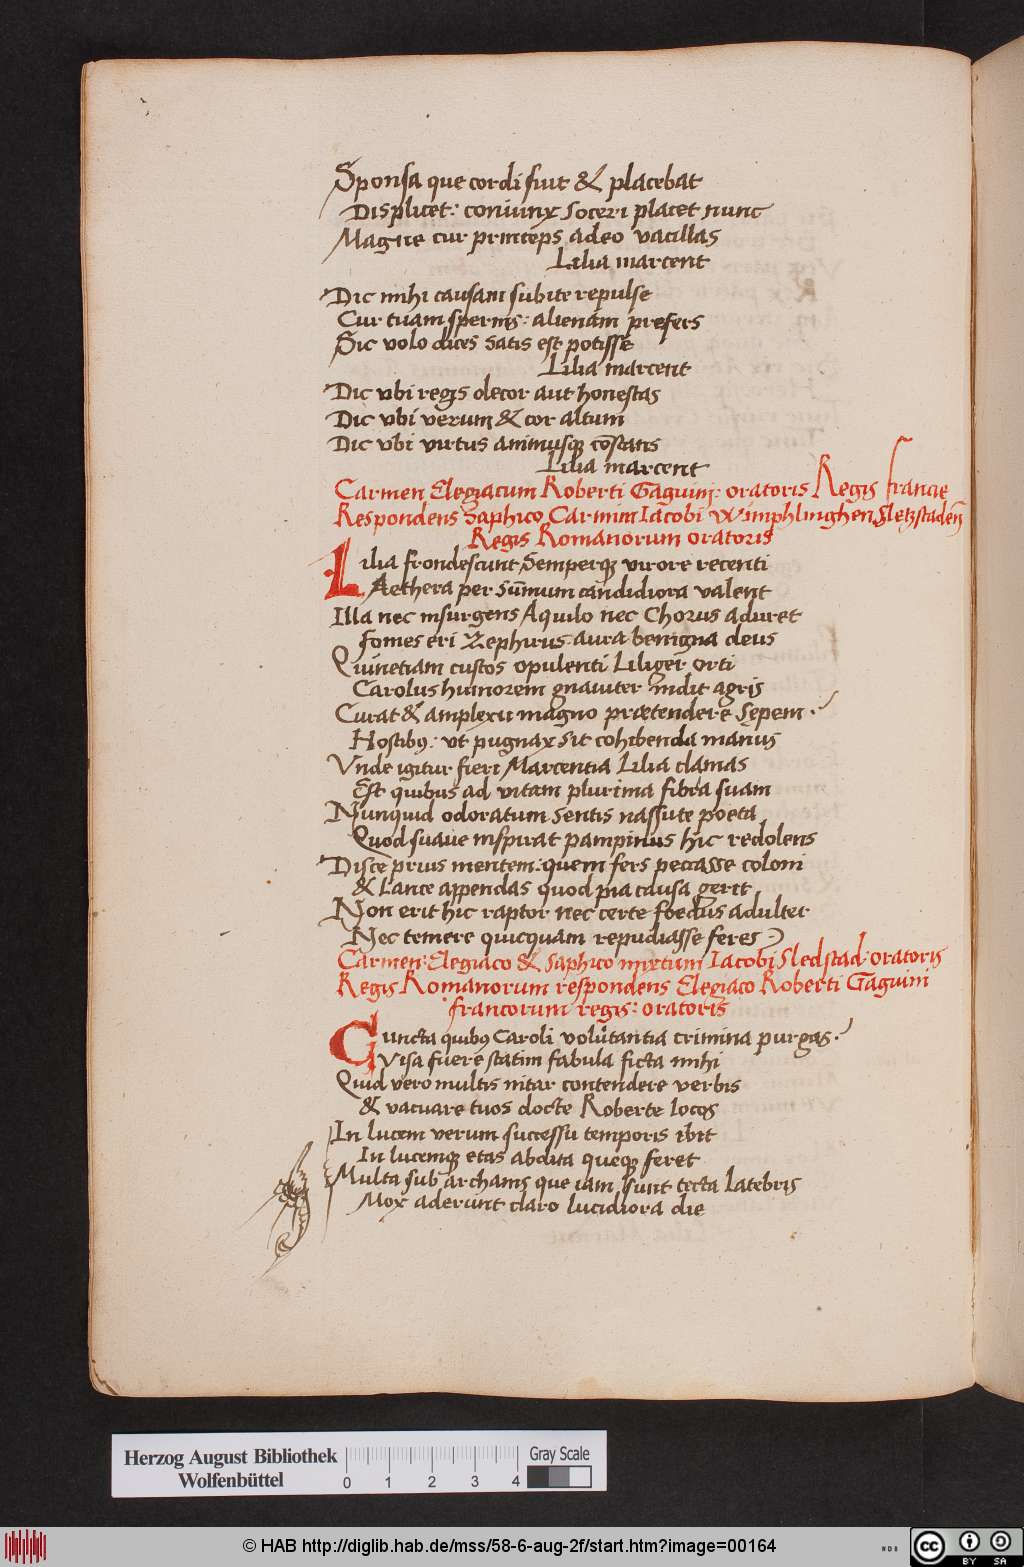 Sponsa que cordi fuit & placebat
Displicet: coniunx soceri placet nunc
Magne cur princeps adeo vacillas
Lilia marcent
Dic mihi causam subite repulse
Cur tuam spernis: alienam prefers
Sic volo dices satis est potisse
Lilia marcent
Dic vbi regis decor aut honestas
Dic vbi verum & cor altum
Dic vbi virtus animusqꝫ costatis
Lilia marcent
Carmen Elegiacum Roberti Gaguini: oratoris Regis francie
Respondens Saphico Carmini Iacobi Wimphlinghen Sletzstadeñ
Regis Romanorum oratoris
Lilia frondescunt Semperqꝫ virore recenti
Aethera per Sum̄um candidiora valent
Illa nec insurgens Aquilo nec Chorus aduret
fomes eri Zephirus: aura benigna deus
Quinetiam custos opulenti Liliger orti
Carolus humorem gnauiter indit agris
Curat & amplexu magno prætendere Sepem
Hostibꝰ: vt pugnax sit cohibenda manus
Vnde igitur fieri Marcentia Lilia clamas
Est quibus ad vitam plurima fibra suam
Nunquid odoratum sentis nassute poeta
Quod suaue inspirat pampinus hic redolens
Disce prius mentem: quem fers peccasse coloni
& Lance appendas quod pia causa gerit
Non erit hic raptor nec certe foedus adulter
Nec temere quicquam repudiasse feres
Carmen: Elegiaco & Saphico mixtum Iacobi Sledstad: oratoris
Regis Romanorum respondens Elegiaco Roberti Gaguini
francorum regis: oratoris
Cuncta quibꝰ Caroli volutantia crimina purgas
Visa fuere statim fabula ficta mihi
Quid vero multis nitar contendere verbis
& vacuare tuos docte Roberte locos
In lucem verum successu temporis ibit
In lucemqꝫ etas abdita queqꝫ feret
Multa sub archanis que iam sunt tecta latebris
Mox aderunt claro lucidiora die
Herzog August Bibliothek
Wolfenbüttel
0 1 2 3 4
Gray Scale
© HAB http://diglib.hab.de/mss/58-6-aug-2f/start.htm?image=00164
cc BY SA